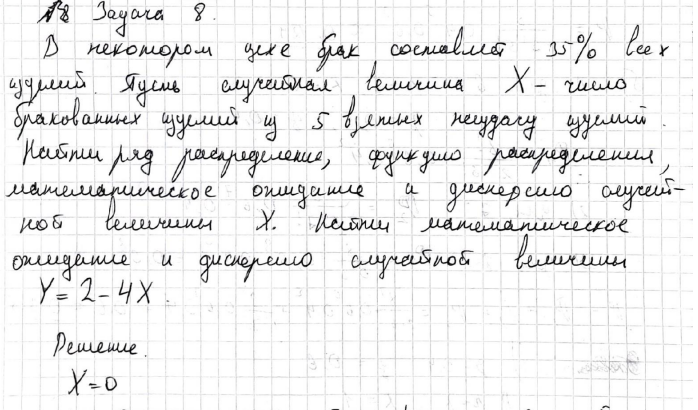 №8 Задача 8.
В некотором цехе брак составляет 35% всех
изделий. Пусть случайная величина X – число
бракованных изделий из 5 взятых неудачу изделий.
Найти ряд распределение, функцию распределения,
математическое ожидание и дисперсию случай-
ной величины X. Найти математическое
ожидание и дисперсию случайной величины
Y = 2 – 4X.
Решение.
X = 0